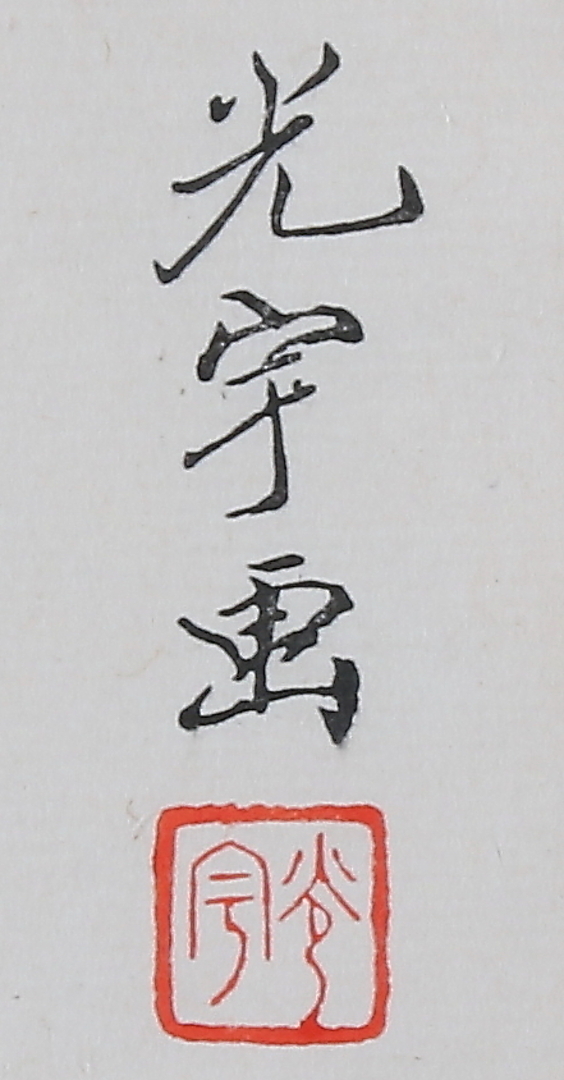 光宇画
光宇